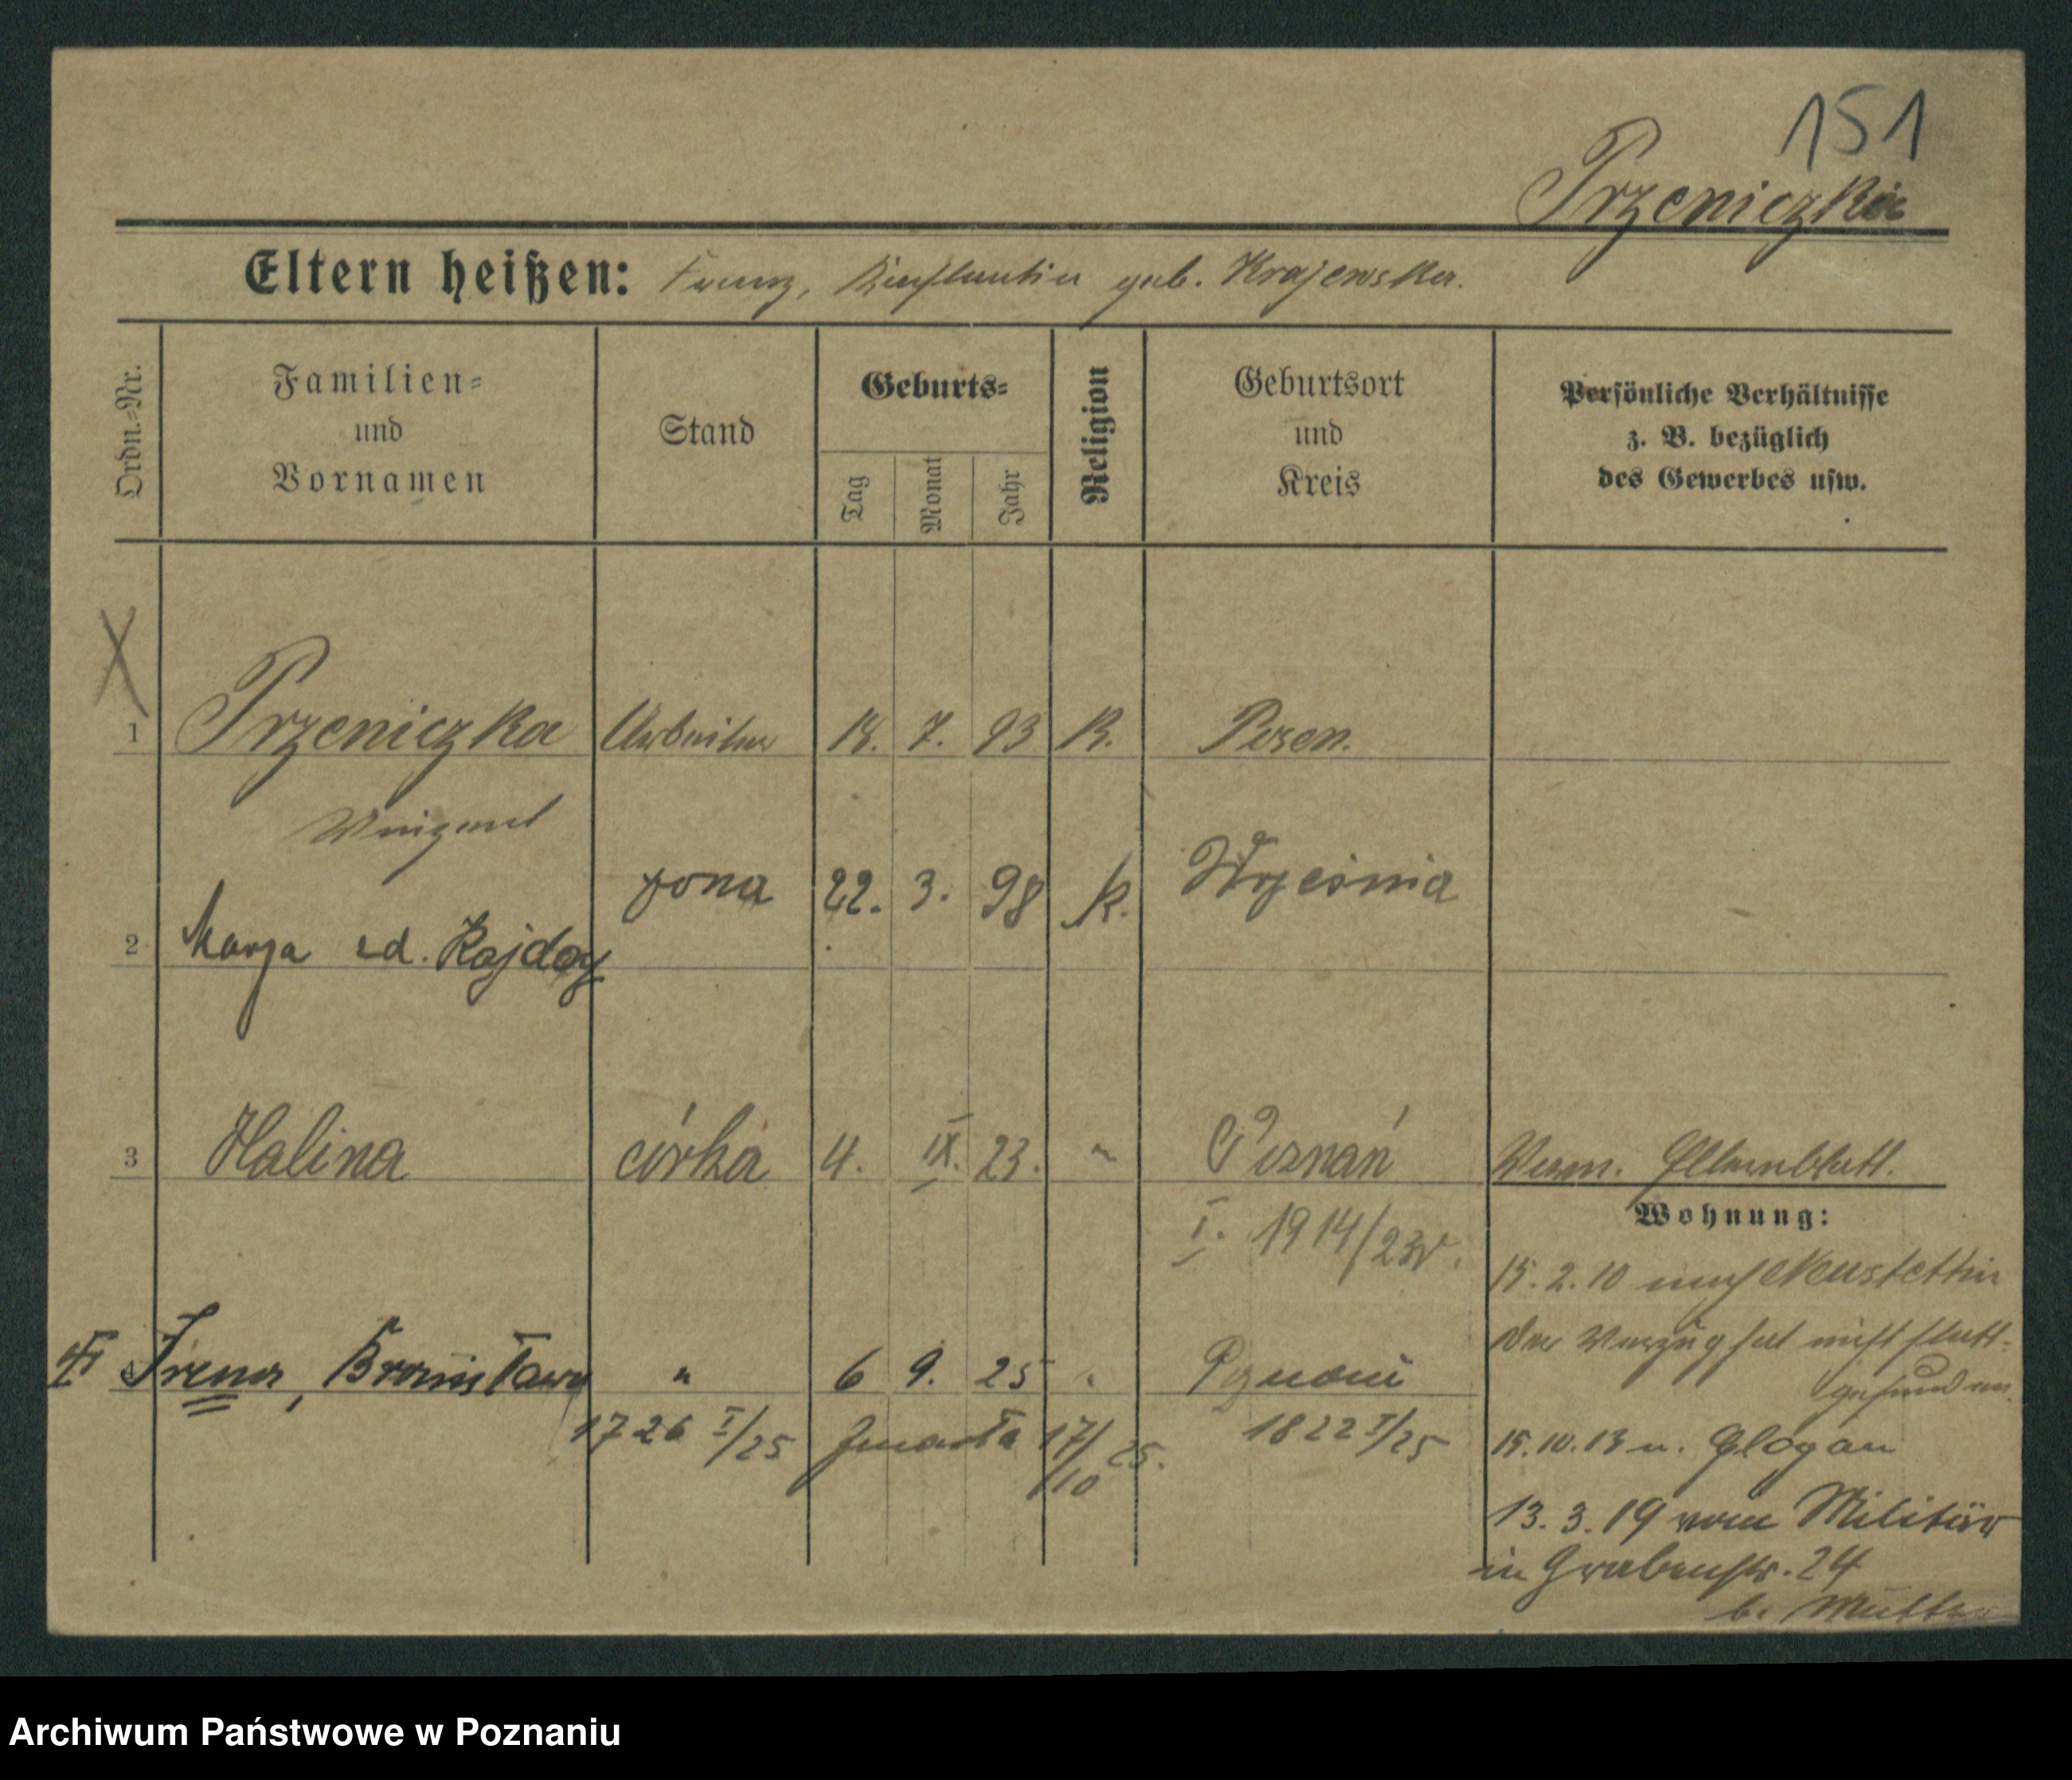 151
Przeniczka
Eltern heißen: Franz, Konstantin geb. Krajewska.
Ordn.-Nr.
Familien- und Vornamen
Stand
Geburts-
Tag Monat Jahr
Religion
Geburtsort und Kreis
Persönliche Verhältnisse z. B. bezüglich des Gewerbes usw.
X
1 Przeniczka Arbeiter 18. 7. 93 K. Posen.
żona 22. 3. 98 k. Września
2 Marja zd.
3 Halina córka 4. IX. 23. " Poznań
Verm. Elternblatt.
I. 1914/23
Wohnung:
15.2.10 nach Neustettin
der Verzug hat nicht statt-
gefunden.
Irena, Bronisława " 6 9. 25 " Poznań
1726 I/25 zmarła 17/10 25. 1822 I/25
15.10.13 n. Glogau
13.3.19 vom Militär
in Grabenstr. 24
b. Mutter
Archiwum Państwowe w Poznaniu